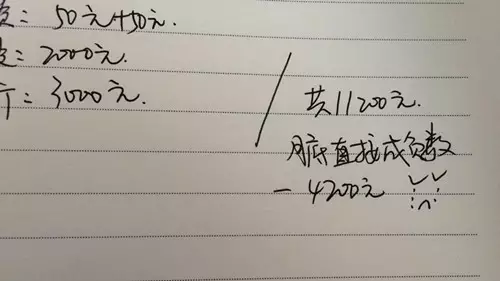 费: 50元+50元.
费: 2000元.
行: 3000元.
共11200元.
月底直接成负数
-4200元